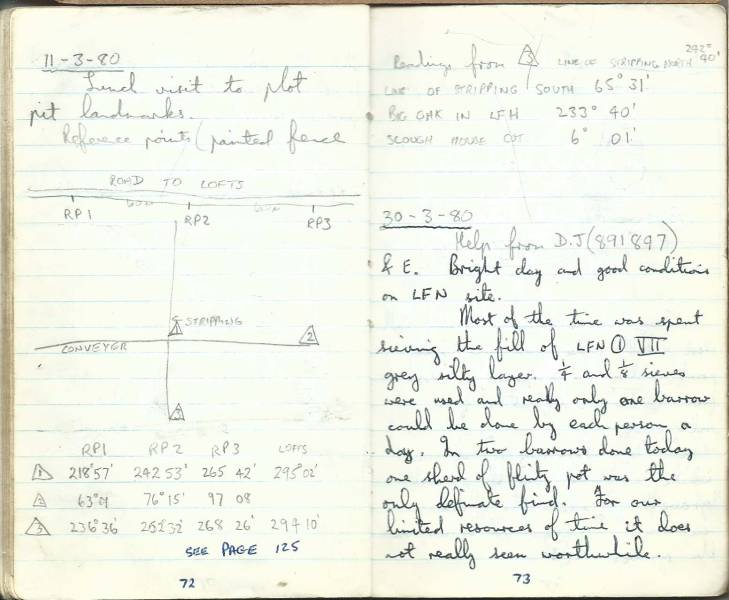 11-3-80
Lunch visit to plot
pit landmarks.
Reference points (painted fence
ROAD TO LOFTS
RP1 RP2 RP3
STRIPPING
1
2
CONVEYER
3
RP1 RP2 RP3 LOFTS
1 218°57' 242 53' 265 42' 295°02'
2 63°01 76°15' 97 08
3 236°36' 252°32' 268 26' 294 10'
SEE PAGE 125
72
Readings from 3 LINE OF STRIPPING NORTH 242° 40'
LINE OF STRIPPING SOUTH 65° 31'
BIG OAK IN LFH 233° 40'
HOUSE 6° 01'
30-3-80
Help from D.J (891897)
& E. Bright day and good conditions
on LFN site.
Most of the time was spent
sieving the fill of LFN ① VII
grey silty layer. 1/4 and 1/8 sieves
were used and really only one barrow
could be done by each person a
day. In two barrows done today
one sherd of flinty pot was the
only definate find. For our
limited resources of time it does
not really seem worthwhile.
73